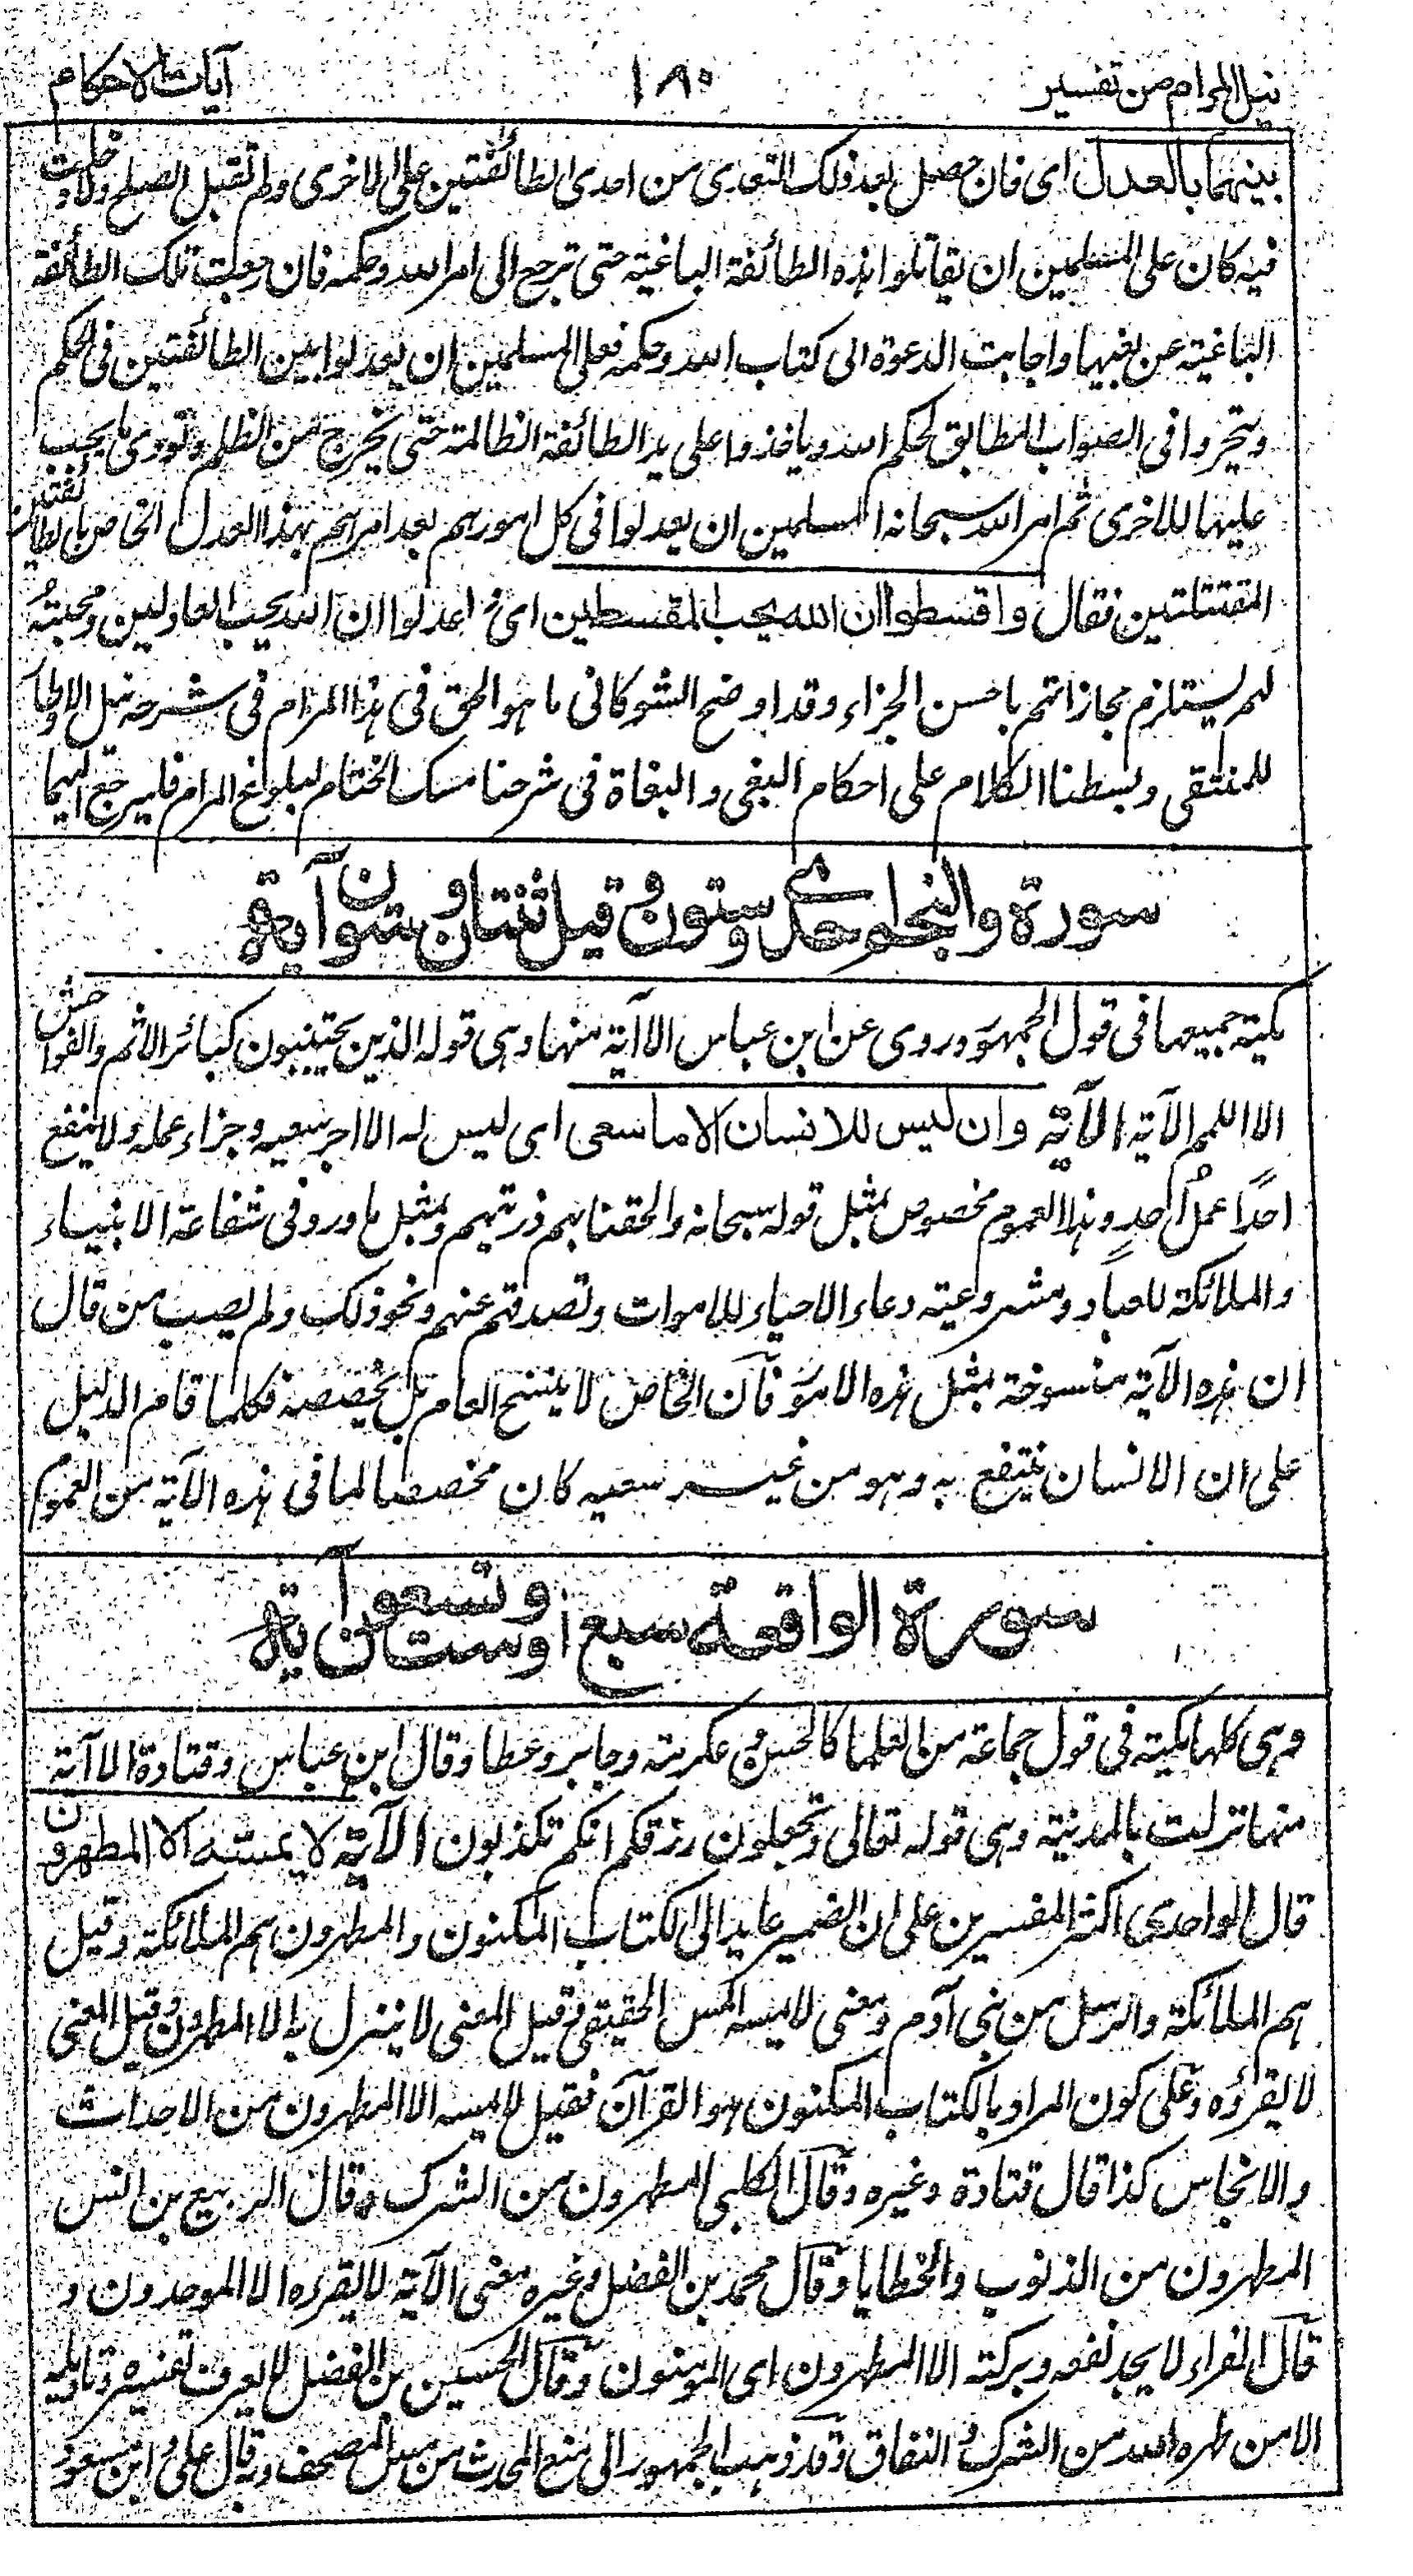 نيل المرام من تفسير ١٨٠ آيات الاحكام
بينهما بالعدل اى فان حصل بعد ذلك التعدى من احدى الطائفتين على الاخرى ولم تقبل الصلح ولا دخلت
فيه كان على المسلمين ان يقاتلوا هذه الطائفة الباغية حتى ترجع الى امر الله وحكمه فان رجعت تلك الطائفة
الباغية عن بغيها واجابت الدعوة الى كتاب الله وحكمه فعلى المسلمين ان يعدلوا بين الطائفتين فى الحكم
ويتحروا فى الصواب المطابق لحكم الله وياخذوا على يد الطائفة الظالمة حتى تخرج من الظلم وتودى ما يجب
عليها للاخرى ثم امر الله سبحانه المسلمين ان يعدلوا فى كل امورهم بعد امرهم بهذا العدل الخاص بالطائفتين
المقتتلتين فقال واقسطوا ان الله يحب المقسطين اى اعدلوا ان الله يحب العادلين ومحبته
لهم يستلزم مجازاتهم باحسن الجزاء وقد اوضح الشوكانى ما هو الحق فى هذا المرام فى شرحه نيل الاوطار
للمنتقى وبسطنا الكلام على احكام البغى والبغاة فى شرحنا مسك الختام لبلوغ المرام فليرجع اليهما
سورة والنجم احدى وستون وقيل ثنتان وستون آية
مكية جميعها فى قول الجمهور وروى عن ابن عباس الا آية منها وهى قوله الذين يجتنبون كبائر الاثم والفواحش
الا اللمم الآية الآية وان ليس للانسان الا ما سعى اى ليس له الا اجر سعيه وجزاء عمله ولا ينفع
احدًا عملُ احدٍ وهذا العموم مخصوص بمثل قوله سبحانه والحقنا بهم ذريتهم وبمثل ما ورد فى شفاعة الانبياء
والملائكة للعباد ومشروعية دعاء الاحياء للاموات وتصدقهم عنهم ونحو ذلك ولم يصب من قال
ان هذه الآية منسوخة بمثل هذه الامور فان الخاص لا ينسخ العام بل يخصصه فكلما قام الدليل
على ان الانسان ينتفع به وهو من غير سعيه كان مخصصا لما فى هذه الآية من العموم
سورة الواقعة سبع او ست وتسعون آية
وهى كلها مكية فى قول جماعة من العلما كالحسن وعكرمة وجابر وعطا وقال ابن عباس وقتادة الا آية
منها نزلت بالمدينة وهى قوله تعالى وتجعلون رزقكم انكم تكذبون الآية لا يمسه الا المطهرون
قال الواحدى اكثر المفسرين على ان الضمير عايد الى الكتاب المكنون والمطهرون هم الملائكة وقيل
هم الملائكة والرسل من بنى آدم ومعنى لا يمسه المس الحقيقى وقيل المعنى لا ينزل به الا المطهرون وقيل المعنى
لا يقرؤه وعلى كون المراد بالكتاب المكنون هو القرآن فقيل لا يمسه الا المطهرون من الاحداث
والانجاس كذا قال قتادة وغيره وقال الكلبى المطهرون من الشرك وقال الربيع بن انس
المطهرون من الذنوب والخطايا وقال محمد بن الفضل وغيره معنى الآية لا يقرءه الا الموحدون و
قال الفراء لا يجد نفعه وبركته الا المطهرون اى المومنون وقال الحسين بن الفضل لا يعرف تفسيره وتاويله
الا من طهره الله من الشرك والنفاق وقد ذهب الجمهور الى منع المحدث من مس المصحف وبه قال على وابن مسعود